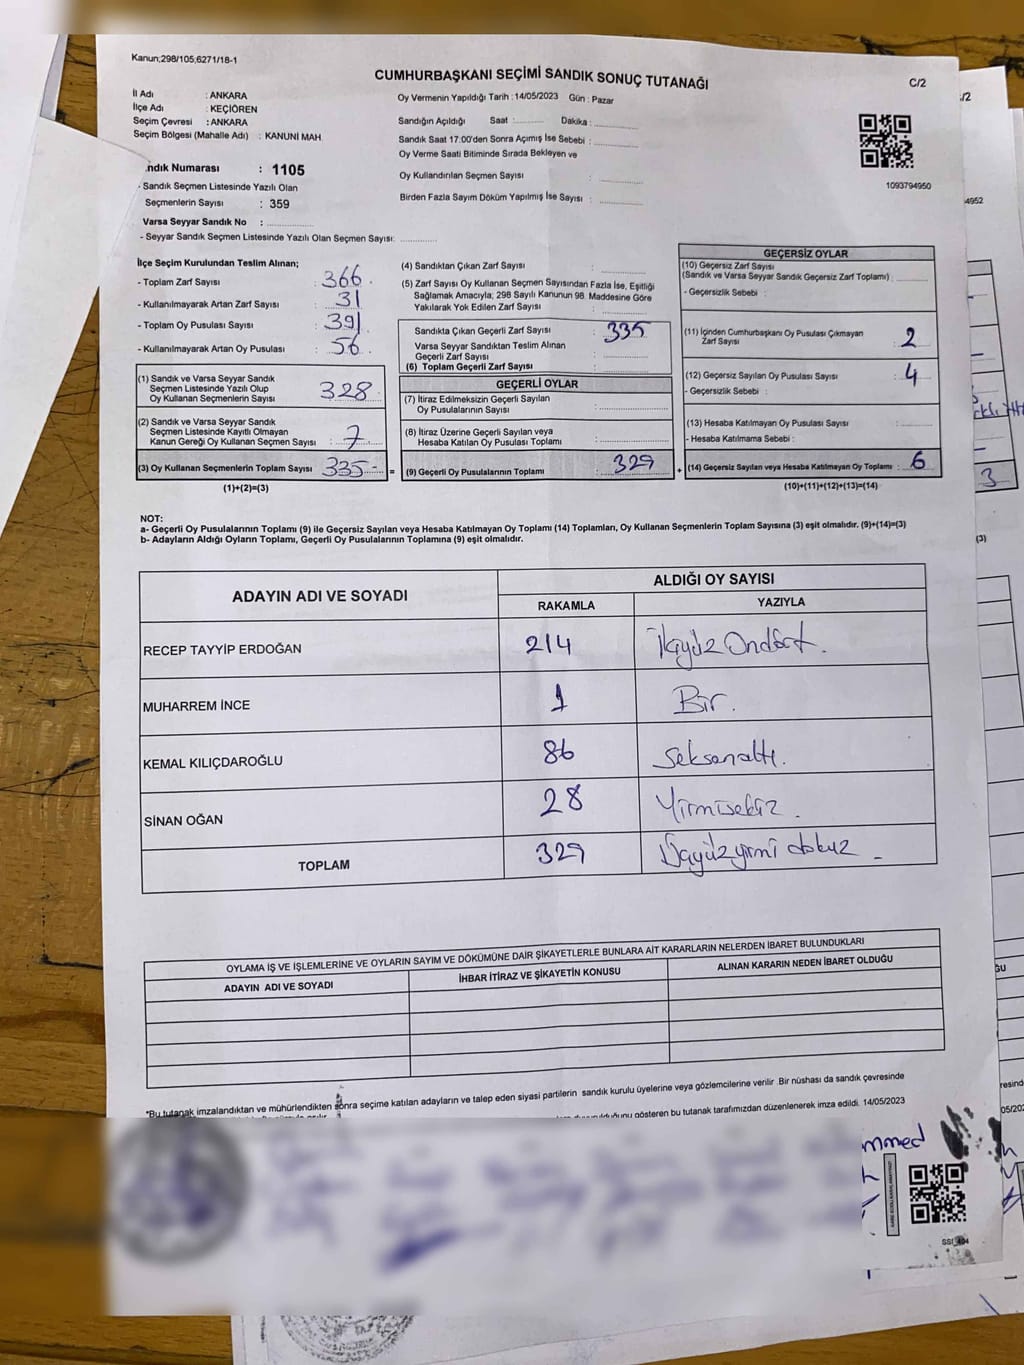 Kanun;298/105;6271/18-1
CUMHURBAŞKANI SEÇİMİ SANDIK SONUÇ TUTANAĞI
C/2
İl Adı : ANKARA
İlçe Adı : KEÇİÖREN
Seçim Çevresi : ANKARA
Seçim Bölgesi (Mahalle Adı) : KANUNİ MAH.
Oy Vermenin Yapıldığı Tarih : 14/05/2023 Gün : Pazar
Sandığın Açıldığı Saat : Dakika :
Sandık Saat 17:00'den Sonra Açımış İse Sebebi :
Oy Verme Saati Bitiminde Sırada Bekleyen ve
Oy Kullandırılan Seçmen Sayısı :
Birden Fazla Sayım Döküm Yapılmış İse Sayısı :
1093794950
Numarası : 1105
- Sandık Seçmen Listesinde Yazılı Olan
Seçmenlerin Sayısı : 359
Varsa Seyyar Sandık No :
- Seyyar Sandık Seçmen Listesinde Yazılı Olan Seçmen Sayısı:
İlçe Seçim Kurulundan Teslim Alınan;
- Toplam Zarf Sayısı : 366
- Kullanılmayarak Artan Zarf Sayısı : 31
- Toplam Oy Pusulası Sayısı : 391
- Kullanılmayarak Artan Oy Pusulası : 56
(1) Sandık ve Varsa Seyyar Sandık
Seçmen Listesinde Yazılı Olup
Oy Kullanan Seçmenlerin Sayısı : 328
(2) Sandık ve Varsa Seyyar Sandık
Seçmen Listesinde Kayıtlı Olmayan
Kanun Gereği Oy Kullanan Seçmen Sayısı : 7
(3) Oy Kullanan Seçmenlerin Toplam Sayısı : 335 =
(1)+(2)=(3)
(4) Sandıktan Çıkan Zarf Sayısı :
(5) Zarf Sayısı Oy Kullanan Seçmen Sayısından Fazla İse, Eşitliği
Sağlamak Amacıyla; 298 Sayılı Kanunun 98. Maddesine Göre
Yakılarak Yok Edilen Zarf Sayısı :
Sandıkta Çıkan Geçerli Zarf Sayısı : 335
Varsa Seyyar Sandıktan Teslim Alınan
Geçerli Zarf Sayısı :
(6) Toplam Geçerli Zarf Sayısı :
GEÇERLİ OYLAR
(7) İtiraz Edilmeksizin Geçerli Sayılan
Oy Pusulalarının Sayısı :
(8) İtiraz Üzerine Geçerli Sayılan veya
Hesaba Katılan Oy Pusulası Toplamı :
(9) Geçerli Oy Pusulalarının Toplamı : 329 +
GEÇERSİZ OYLAR
(10) Geçersiz Zarf Sayısı
(Sandık ve Varsa Seyyar Sandık Geçersiz Zarf Toplamı) :
- Geçersizlik Sebebi :
(11) İçinden Cumhurbaşkanı Oy Pusulası Çıkmayan
Zarf Sayısı : 2
(12) Geçersiz Sayılan Oy Pusulası Sayısı : 4
- Geçersizlik Sebebi :
(13) Hesaba Katılmayan Oy Pusulası Sayısı :
- Hesaba Katılmama Sebebi :
(14) Geçersiz Sayılan veya Hesaba Katılmayan Oy Toplamı : 6
(10)+(11)+(12)+(13)=(14)
NOT:
a- Geçerli Oy Pusulalarının Toplamı (9) ile Geçersiz Sayılan veya Hesaba Katılmayan Oy Toplamı (14) Toplamları, Oy Kullanan Seçmenlerin Toplam Sayısına (3) eşit olmalıdır. (9)+(14)=(3)
b- Adayların Aldığı Oyların Toplamı, Geçerli Oy Pusulalarının Toplamına (9) eşit olmalıdır.
ADAYIN ADI VE SOYADI
ALDIĞI OY SAYISI
RAKAMLA YAZIYLA
RECEP TAYYİP ERDOĞAN 214 İkiyüz Ondört.
MUHARREM İNCE 1 Bir.
KEMAL KILIÇDAROĞLU 86 Seksenaltı.
SİNAN OĞAN 28 Yirmisekiz.
TOPLAM 329 Üçyüzyirmi dokuz
OYLAMA İŞ VE İŞLEMLERİNE VE OYLARIN SAYIM VE DÖKÜMÜNE DAİR ŞİKAYETLERLE BUNLARA AİT KARARLARIN NELERDEN İBARET BULUNDUKLARI
ADAYIN ADI VE SOYADI İHBAR İTİRAZ VE ŞİKAYETİN KONUSU ALINAN KARARIN NEDEN İBARET OLDUĞU
*Bu tutanak imzalandıktan ve mühürlendikten sonra seçime katılan adayların ve talep eden siyasi partilerin sandık kurulu üyelerine veya gözlemcilerine verilir. Bir nüshası da sandık çevresinde
gösteren bu tutanak tarafımızdan düzenlenerek imza edildi. 14/05/2023
4952
3
(3)